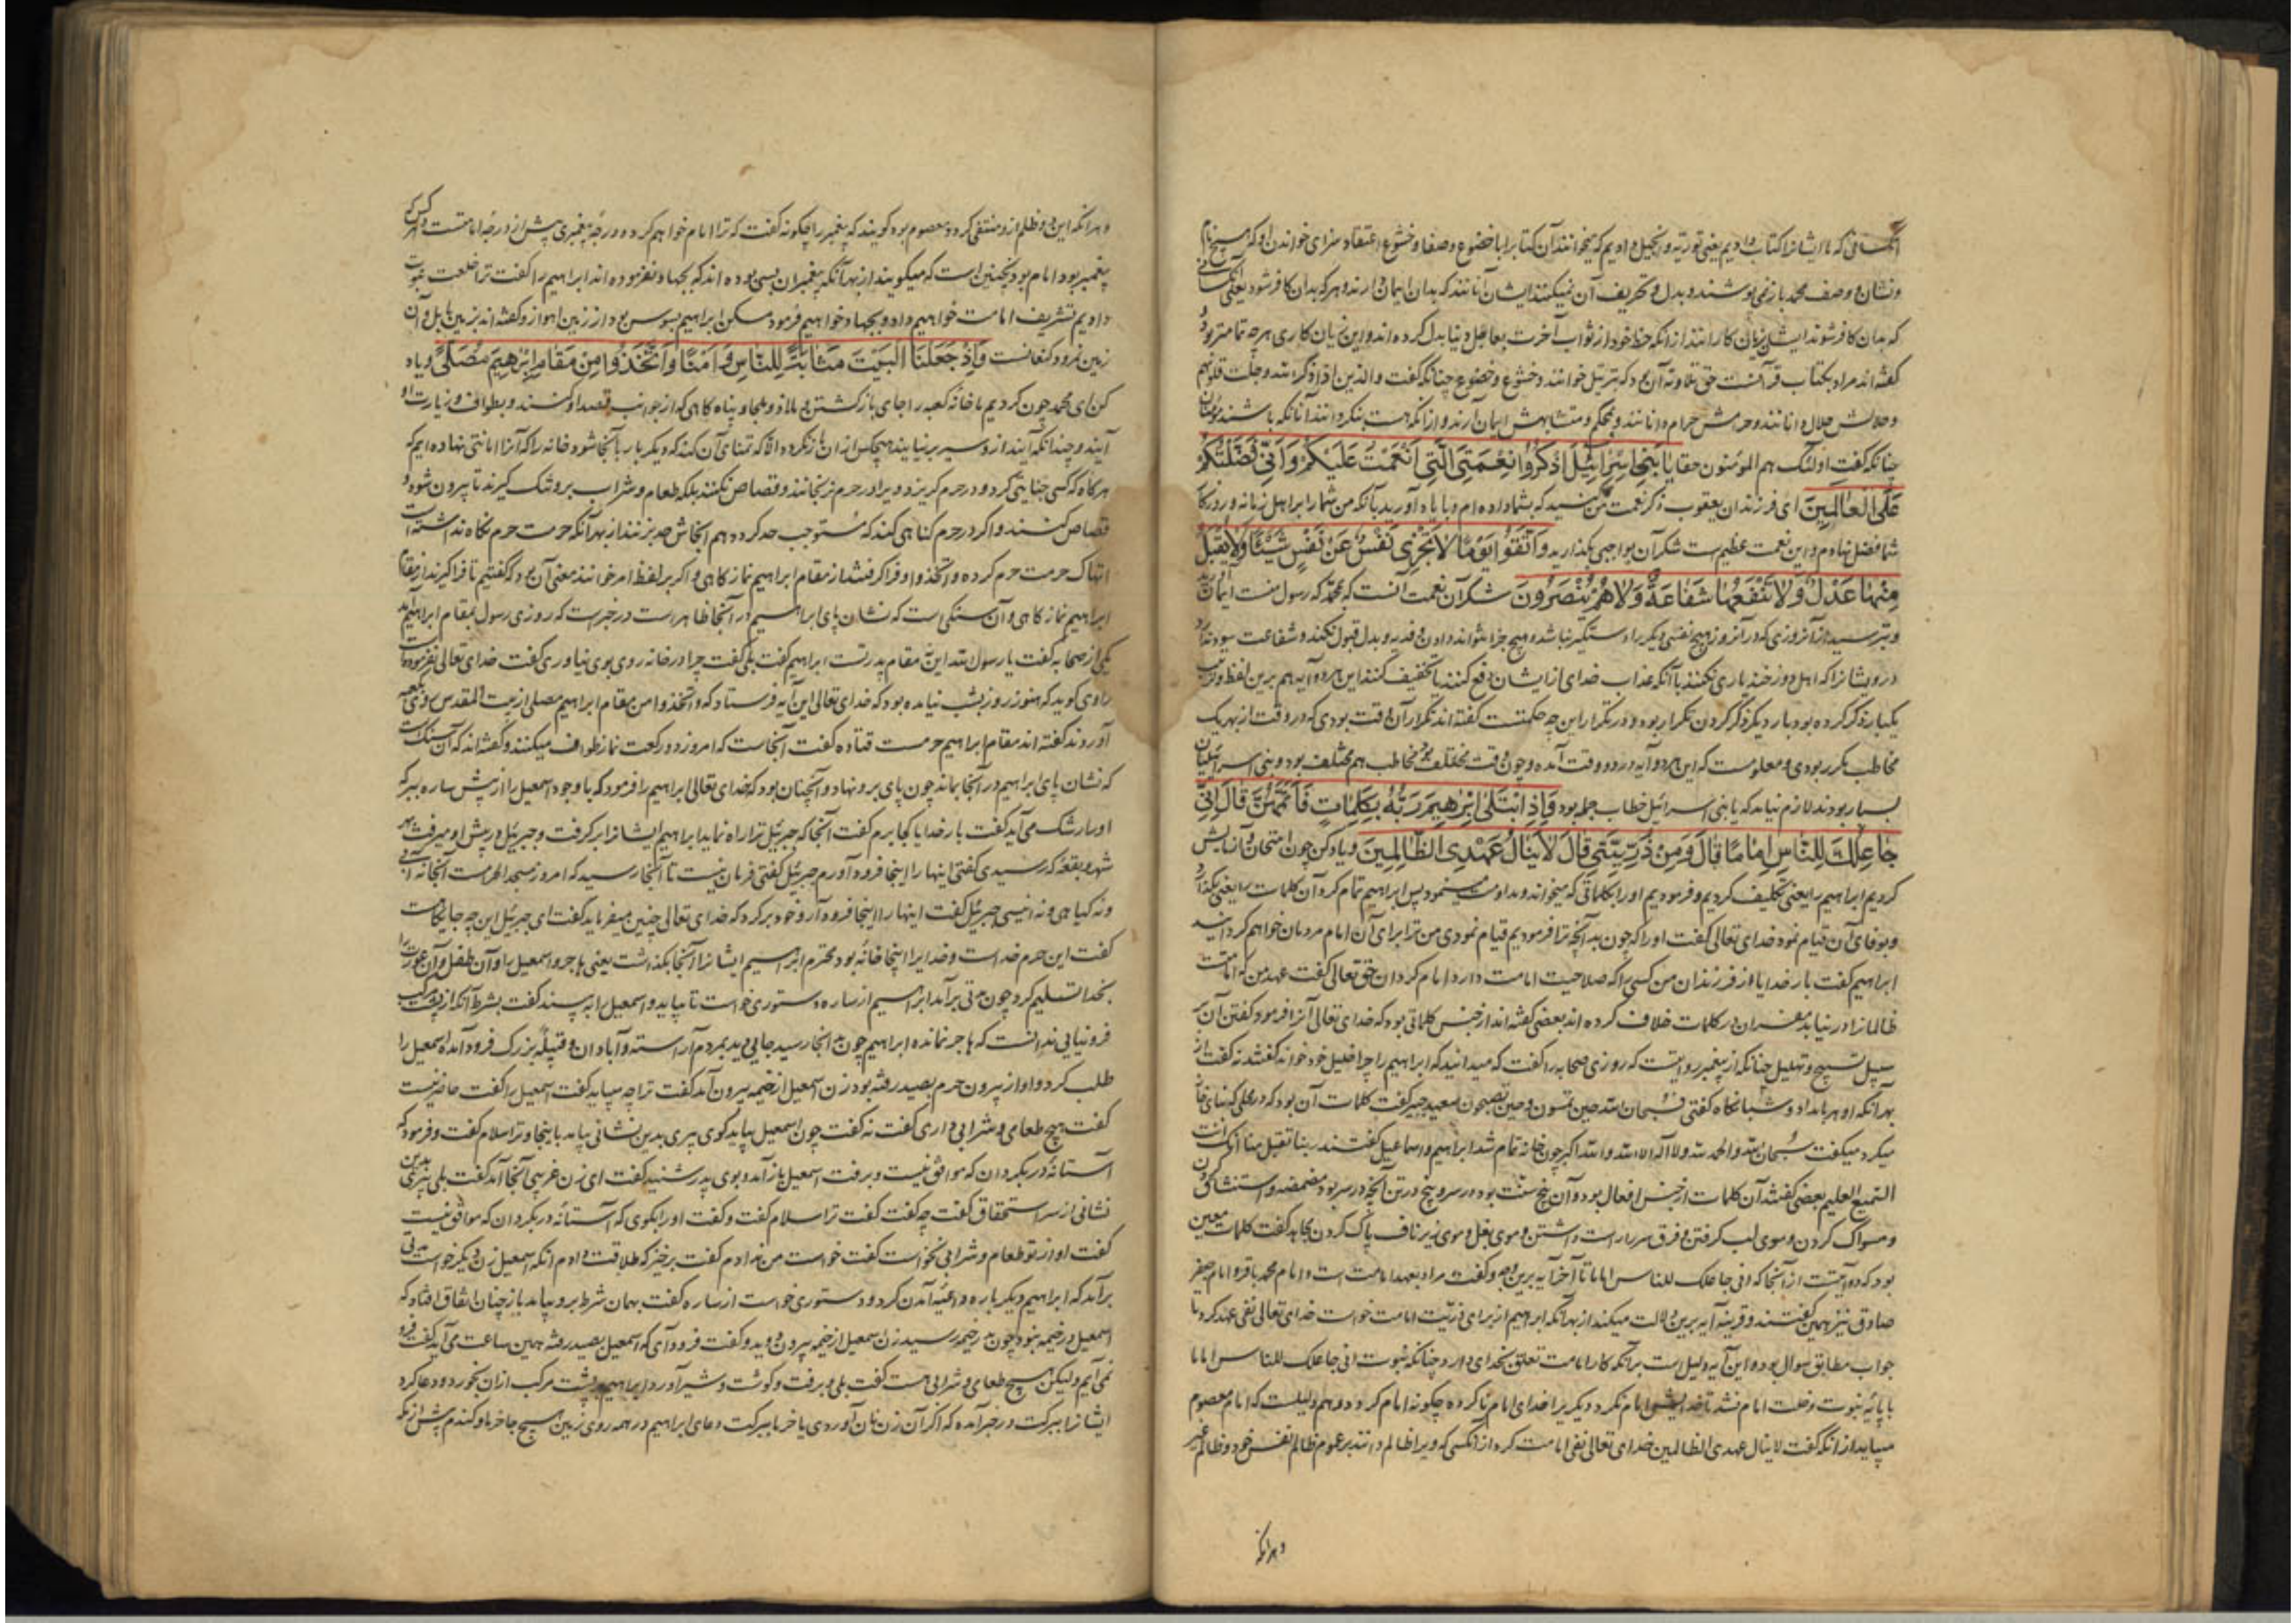 آنکسانی که ما ایشانرا کتاب دادیم یعنی توریة و انجیل دادیم که میخوانند آن کتابرا با خضوع و صفا و خشوع و اعتقاد سزای خواندن او که هیچ نام
و نشان و وصف محمد باز نمی پوشند و بدل و تحریف آن نمیکنند ایشان آنانند که بدان ایمان دارند و هر که بدان کافر شود یعنی آنکسانی
که بدان کافر شوند ایشان زیان کارانند از آنکه حظ خود از ثواب آخرت بعاجل دنیا بدل کرده اند و این زیان کاری هر چه تمامتر بود
گفته اند مراد بکتاب قرآنست حق تلاوته آن بود که بترتیل خوانند و خشوع و خضوع چنانکه گفت والذین اذا ذکر الله وجلت قلوبهم
و حلالش حلال دانند و حرامش حرام دانند و بمحکم و متشابهش ایمان آرند و از آنکه هست بنگردانند آنانکه باشند مؤمنان
چنانکه گفت اولئک هم المؤمنون حقا یَا بَنِی اِسْرَائِیلَ اذْکُرُوا نِعْمَتِیَ الَّتِی اَنْعَمْتُ عَلَیْکُمْ وَاَنِّی فَضَّلْتُکُمْ
عَلَی الْعَالَمِینَ ای فرزندان یعقوب ذکر نعمت من کنید که بشما داده ام و با یاد آورید بآنکه من شما را بر اهل زمانه و روزگار
شما فضل نهادم و این نعمت عظیم است شکر آن بواجبی بگذارید وَاتَّقُوا یَوْمًا لَا تَجْزِی نَفْسٌ عَنْ نَفْسٍ شَیْئًا وَلَا یُقْبَلُ
مِنْهَا عَدْلٌ وَلَا تَنْفَعُهَا شَفَاعَةٌ وَلَا هُمْ یُنْصَرُونَ شکر آن نعمت آنست که بمحمد که رسول منست ایمان آورید
و بترسید از آنروزی که در آنروز هیچ نفسی دیگر را دستگیر نباشد و هیچ جزا نتواند دادن و فدیه و بدل قبول نکند و شفاعت سود ندارد
و ایشانرا که اهل دوزخند یاری نکنند با آنکه عذاب خدای از ایشان دفع کنند یا تخفیف کنند این هر دو آیه هم برین لفظ و ترتیب
یکبار ذکر کرده بود بار دیگر ذکر کردن تکرار بود و در تکرار این چه حکمتست گفته اند تکرار آن وقت بودی که در وقت از بهر یک
مخاطب مکرر بودی و معلومست که این هر دو آیه در دو وقت آمده و چون وقت مختلف بود مخاطب هم مختلف بود و بنی اسرائیلیان
بسیار بودند لازم نیاید که یا بنی اسرائیل خطاب جمله بود وَاِذِ ابْتَلَی اِبْرٰهِیمَ رَبُّهُ بِکَلِمَاتٍ فَاَتَمَّهُنَّ قَالَ اِنِّی
جَاعِلُکَ لِلنَّاسِ اِمَامًا قَالَ وَمِنْ ذُرِّیَّتِی قَالَ لَا یَنَالُ عَهْدِی الظَّالِمِینَ و یاد کن چون امتحان و آزمایش
کردیم ابراهیم را یعنی تکلیف کردیم و فرمودیم او را بکلماتی که میخواند و مداومت مینمود پس ابراهیم تمام کرد آن کلمات را یعنی بگذارد
و بوفای آن قیام نمود خدای تعالی گفت او را که چون بد آنچه ترا فرمودیم قیام نمودی من ترا برای آن امام مردمان خواهم گردانید
ابراهیم گفت بار خدایا از فرزندان من کسی را که صلاحیت امامت دارد امام گردان حق تعالی گفت عهد من که امامتست
ظالمانرا در نیابد مفسران در کلمات خلاف کرده اند بعضی گفته اند از جنس کلماتی بود که خدای تعالی آنرا فرمود گفتن آن بر
سبیل تسبیح و تهلیل چنانکه از پیغمبر روایتست که روزی صحابه را گفت که میدانید که ابراهیم را چرا خلیل خود خواند گفتند نه گفت از
بهر آنکه او هر بامداد و شبانگاه گفتی فسبحان الله حین تمسون و حین تصبحون سعید جبیر گفت کلمات آن بود که در محلی که بنای خانه
میکرد میگفت سبحان الله والحمد لله ولا اله الا الله والله اکبر چون خانه تمام شد ابراهیم و اسماعیل گفتند ربنا تقبل منا انک انت
السمیع العلیم بعضی گفتند آن کلمات از جنس افعال بود و آن پنج سنت بود در سر و پنج در تن آنچه در سر بود مضمضه و استنشاق
و مسواک کردن و موی لب گرفتن و فرق سر راست داشتن و موی بغل و موی زیر ناف پاک کردن مجاهد گفت کلمات معین
بود که در آیتست از آنجا که انی جاعلک للناس اماما تا آخر آیه برین وجه و گفت مراد بعهد امامت است و امام محمد باقر و امام جعفر
صادق نیز همین گفتند و قرینه آیه برین دلالت میکند از بهر آنکه ابراهیم از برای ذریت امامت خواست خدای تعالی نفی عهد کرد تا
جواب مطابق سوال بود و این آیه دلیل است بر آنکه کار امامت تعلق بخدای دارد چنانکه نبوت انی جاعلک للناس اماما
با پایۀ نبوت و خلت امام نشد تا خدایش امام نکرد دیگر یرا خدای امام نا کرده چگونه امام گردد و هم دلیلست که امام معصوم
میباید از آنکه گفت لا ینال عهدی الظالمین خدای تعالی نفی امامت کرد از آنکسی که ویرا ظالم دانند بر عموم ظالم نفس خود و ظالم غیر
و هر آنکه
و هر آنکه این دو ظلم ازو منتفی گردد معصوم بود گویند که پیغمبر را چگونه گفت که ترا امام خواهم کرد و درجۀ پیغمبری پیش از درجۀ امامتست و هر کس که
پیغمبر بود امام بود نچنین است که میگویند از بهر آنکه پیغمبران بسی بوده اند که بجهاد نفرموده اند ابراهیم را گفت ترا خلعت نبوت
دادیم تشریف امامت خواهیم داد و بجهاد خواهیم فرمود مسکن ابراهیم بسوس بود از زمین اهواز و گفته اند بزمین بابل و آن
زمین نمرود کنعانست وَاِذْ جَعَلْنَا الْبَیْتَ مَثَابَةً لِلنَّاسِ وَاَمْنًا وَاتَّخِذُوا مِنْ مَقَامِ اِبْرٰهِیمَ مُصَلًّی و یاد
کن ای محمد چون کردیم ما خانۀ کعبه را جای باز گشتن و ملاذ و ملجا و پناه گاهی که از جوانب قصد او کنند و بطواف و زیارت او
آیند و چندانکه آیند ازو سیر برنیایند هیچکس از آن باز نگردد الا که تمنای آن کند که دیگر بار بآنجا شود خانه را که آنرا امانتی نهاده ایم که
هر گاه که کسی جنایتی کرد و در حرم گریزد ویرا در حرم نرنجانند و قصاص نکنند بلکه طعام و شراب برو تنگ گیرند تا بیرون شود و
قصاص کنند و اگر در حرم گناهی کند که مستوجب حد گردد هم آنجاش حد بزنند از بهر آنکه حرمت حرم نگاه نداشته است
انتهاک حرمت حرم کرده و اتخذوا و فرا گرفتند از مقام ابراهیم نماز گاهی و اگر بر لفظ امر خوانند معنی آن بود که گفتیم تا فرا گیرند از مقام
ابراهیم نماز گاهی و آن سنگی است که نشان پای ابراهیم در آنجا ظاهر است در خبر است که روزی رسول بمقام ابراهیم آمد
یکی از صحابه گفت یا رسول الله این نه مقام پدر تست ابراهیم گفت بلی گفت چرا در خانه روی بوی نیاوری گفت خدای تعالی نفرموده است
راوی گوید که هنوز روز بشب نیامده بود که خدای تعالی این آیه فرستاد که واتخذوا من مقام ابراهیم مصلی از بیت المقدس روی بکعبه
آوردند گفته اند مقام ابراهیم حرمست قتاده گفت آنجاست که امروز دو رکعت نماز طواف میکنند و گفته اند که آن سنگست
که نشان پای ابراهیم در آنجا بماند چون پای برو نهاد و آنچنان بود که خدای تعالی ابراهیم را فرمود که باوجود اسمعیل را از پیش ساره ببر که
او را رشک می آید گفت بار خدایا کجا برم گفت آنجا که جبرئیل ترا راه نماید ابراهیم ایشانرا برگرفت و جبرئیل در پیش او میرفت بهر
شهر و بقعه که رسیدی گفتی اینها را اینجا فرود آورم جبرئیل گفتی فرمان نیست تا آنجا رسید که امروز مسجد الحرامست آنجا نه آبی
و نه گیاهی و نه انیسی جبرئیل گفت اینها را اینجا فرود آر و خود برگرد که خدای تعالی چنین میفرماید گفت ای جبرئیل این چه جایگاهست
گفت این حرم خداست و خدایرا اینجا خانۀ بود محترم ابراهیم ایشانرا آنجا بگذاشت یعنی هاجر و اسمعیل را و آن طفل و آن عورت را
بخدا تسلیم کرد چون مدتی برآمد ابراهیم از ساره دستوری خواست تا بیاید و اسمعیل را به بیند گفت بشرط آنکه از پشت مرکب
فرو نیایی ندانست که هاجر نمانده ابراهیم چون به آنجا رسید جایی دید بمردم آراسته و آبادان و قبیلۀ بزرگ فرود آمده اسمعیل را
طلب کرد و او از بیرون حرم بصید رفته بود زن اسمعیل از خیمه بیرون آمد گفت ترا چه میباید گفت اسمعیل را گفت حاضر نیست
گفت هیچ طعامی و شرابی داری گفت نه گفت چون اسمعیل بیاید گوی پیری بدین نشانی بیامد باینجا و ترا سلام گفت و فرمود که
آستانۀ در بگردان که موافق نیست و برفت اسمعیل باز آمد و بوی پدر شنید گفت ای زن غریبی آنجا آمد گفت بلی پیری بدین
نشانی از سر استحقاق گفت چه گفت گفت ترا سلام گفت و گفت او را بگوی که آستانه در بگردان که موافق نیست
گفت او از تو طعام و شرابی نخواست گفت خواست من ندادم گفت برخیز که طلاقت دادم آنگه اسمعیل زن دیگر خواست مدتی
برآمد که ابراهیم دیگر باره داعیۀ آمدن کرد و دستوری خواست از ساره گفت بهمان شرط برو بیامد باز چنان اتفاق افتاد که
اسمعیل در خیمه نبود چون بدر خیمه رسید زن اسمعیل از خیمه بیرون دوید و گفت فرود آی که اسمعیل بصید رفته همین ساعت می آید گفت فرو
نمی آیم ولیکن هیچ طعامی و شرابی هست گفت بلی و برفت و گوشت و شیر آورد ابراهیم بر پشت مرکب از آن بخورد و دعا کرد
ایشانرا ببرکت و در خبر آمده که اگر آن زن نان آوردی یا خرما ببرکت دعای ابراهیم در همه روی زمین هیچ جا خرما و گندم بیش از مکه